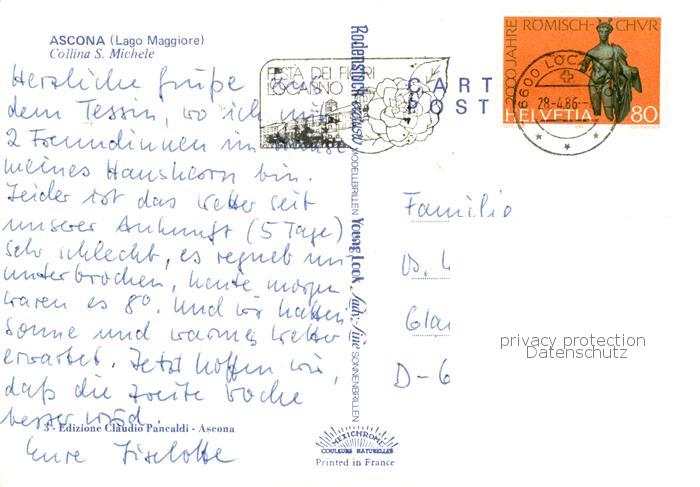 ASCONA (Lago Maggiore)
Collina S. Michele
Herzliche Grüße aus
dem Tessin, wo ich mit
2 Freundinnen im Hause
meines Hausherrn bin.
Leider ist das Wetter seit
unserer Ankunft (5 Tage)
sehr schlecht, es regnet un
unterbrochen, heute morgen
waren es 8°. Und wir hatten
Sonne und warmes Wetter
erwartet. Jetzt hoffen wir,
daß die zweite Woche
besser wird.
3 - Edizione Claudio Pancaldi - Ascona
Eure Liselotte
Rodenstock exclusiv MODELLBRILLEN Young Look Lady-Line SONNENBRILLEN
MEXICHROME
COULEURS NATURELLES
Printed in France
FESTA DEI FIORI
LOCARNO
CART
POST
2000 JAHRE RÖMISCH-CHUR
HELVETIA 80
6600 LOCARNO
28-4.86-
Familie
D-6
privacy protection
Datenschutz